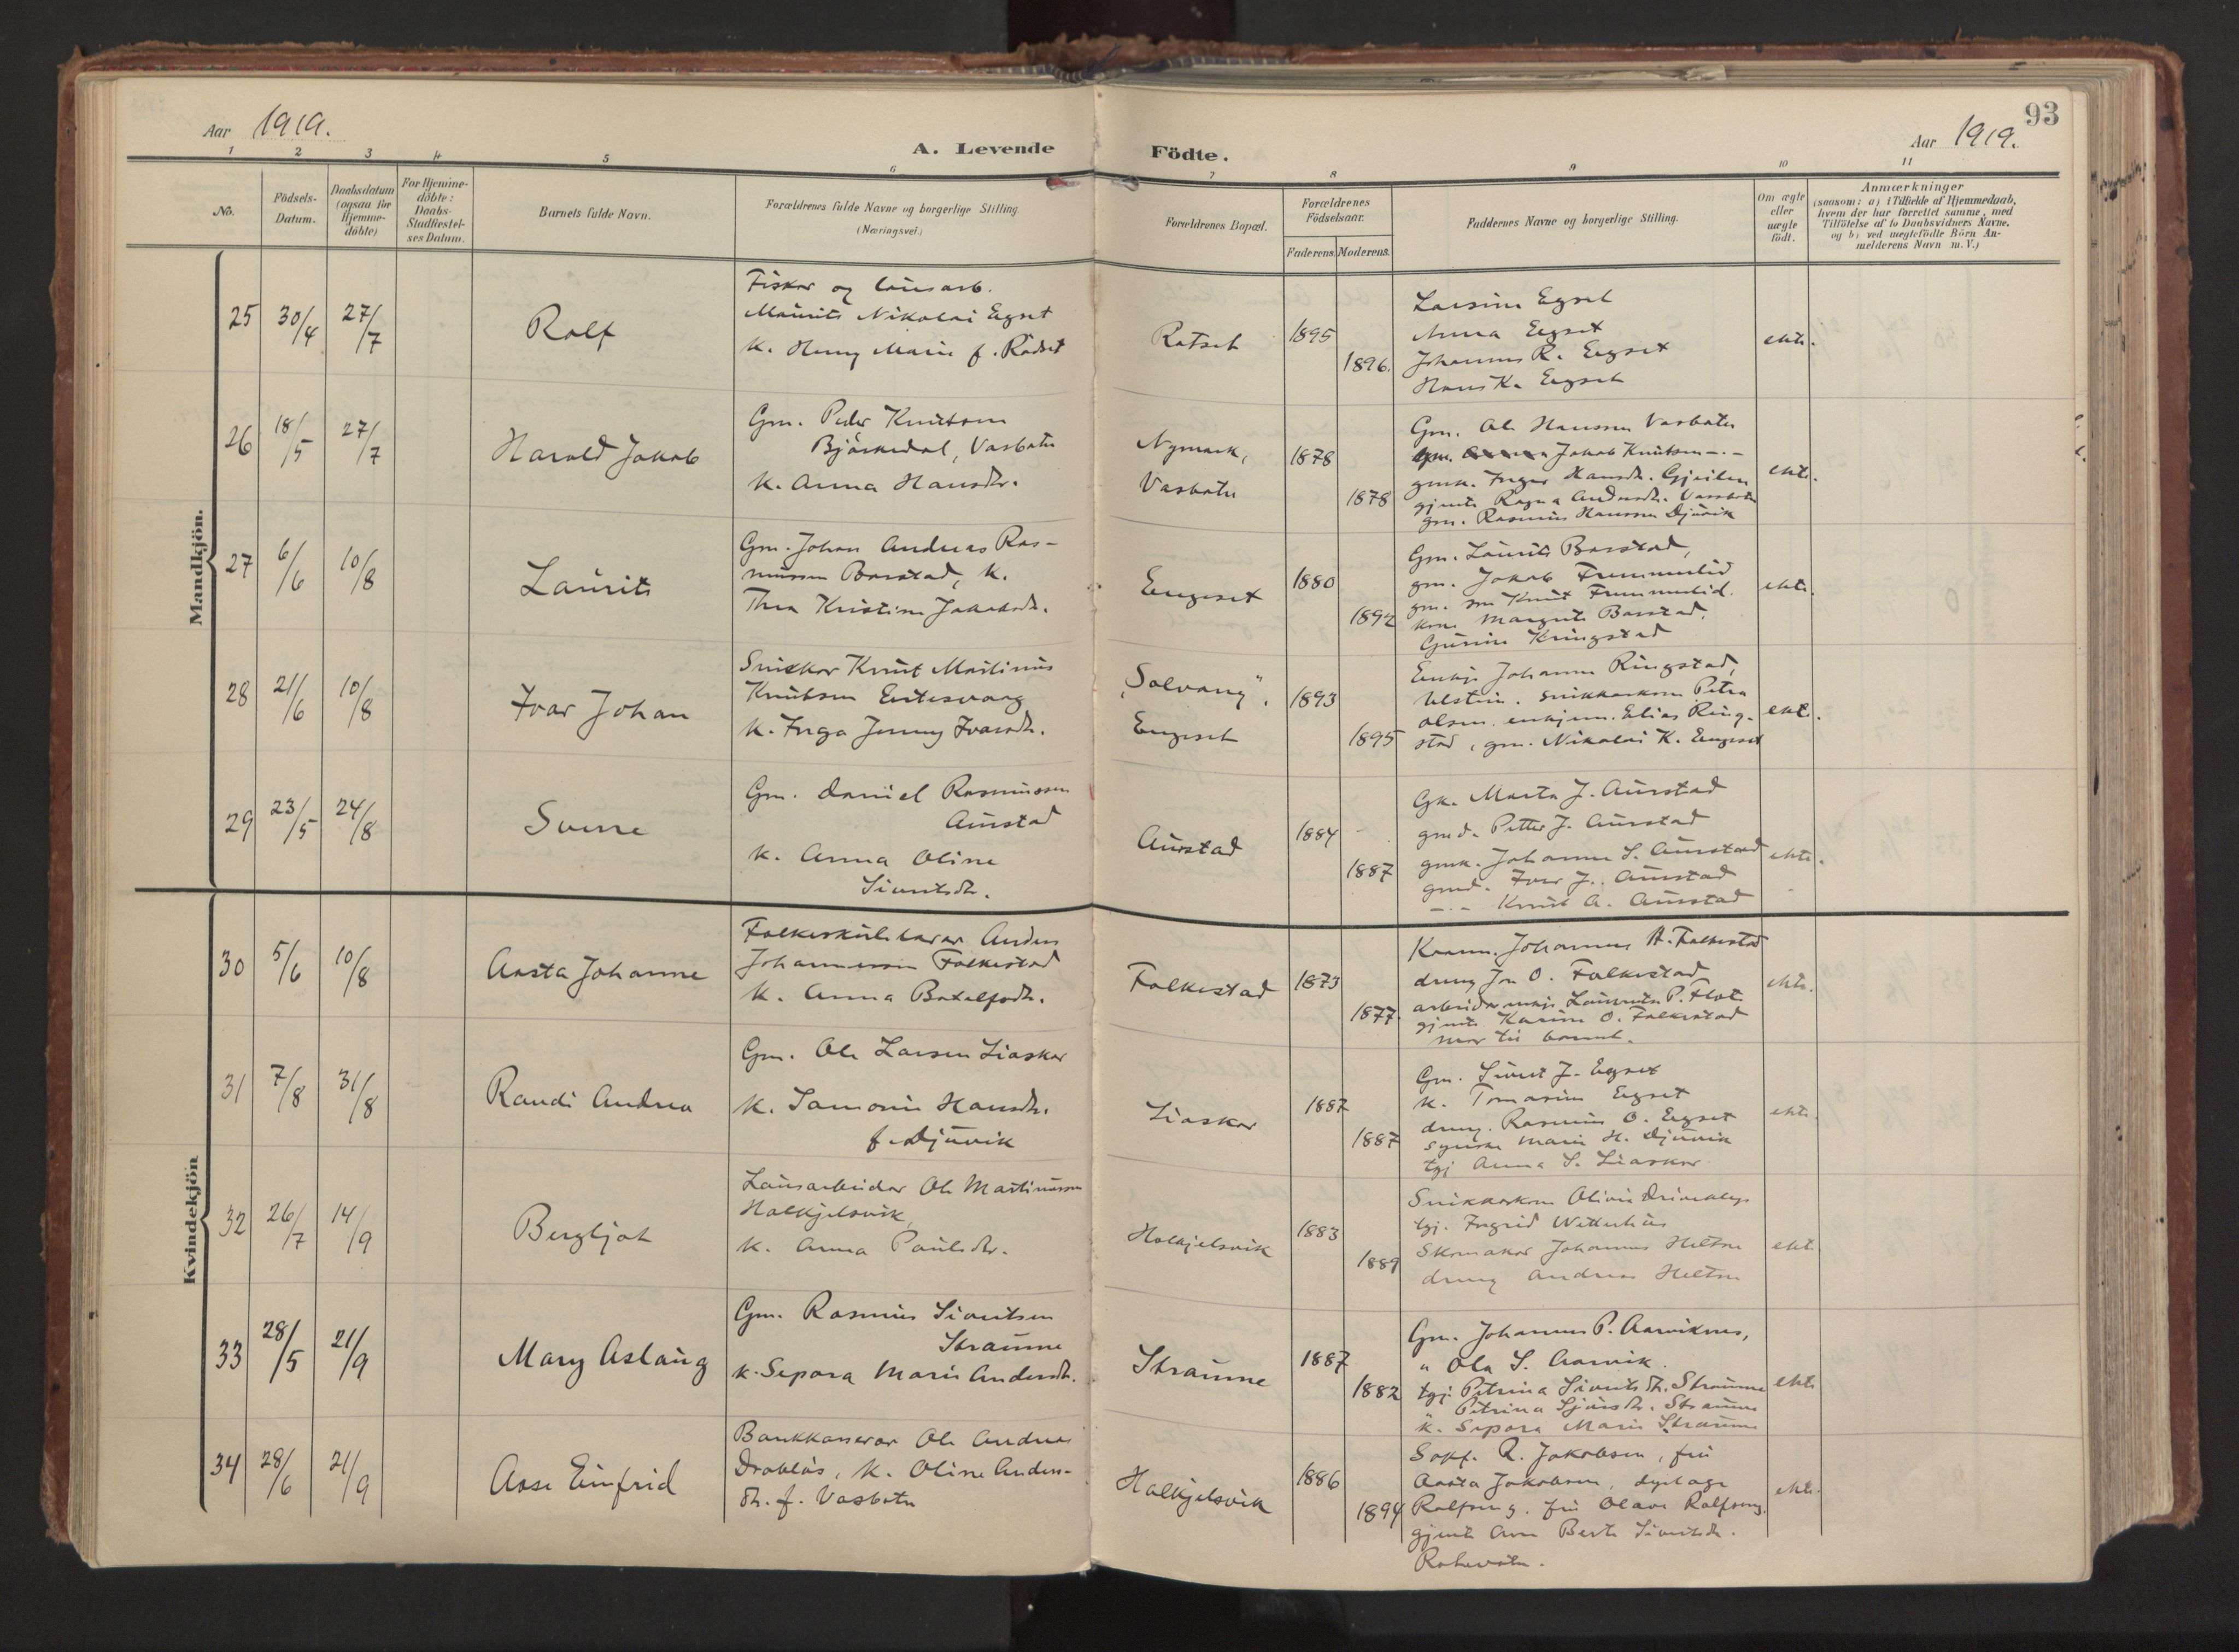 93
Aar 1919.
A. Levende Födte.
Aar 1919.
1 2 3 4 5 6 7 8 9 10 11
No.
Födsels-
Datum.
Daabsdatum
(ogsaa for
Hjemme-
döbte)
For Hjemme-
döbte:
Daabs-
Stadfæstel-
ses Datum.
Barnets fulde Navn.
Forældrenes fulde Navne og borgerlige Stilling
(Næringsvei.)
Forældrenes Bopæl.
Forældrenes
Födselsaar.
Faderens. Moderens.
Faddernes Navne og borgerlige Stilling.
Om ægte
eller
uægte
födt.
Anmærkninger
(saasom: a) i Tilfælde af Hjemmedaab,
hvem der har forrettet samme, med
Tilföielse af to Daabsvidners Navne,
og b) ved uægtefödte Börn An-
melderens Navn m. V.)
Mandkjön.
25 30/4 27/7 Rolf
Fiskar og lausarb.
Maurits Nikolai Egset
k. Henny Marie f. Rødset
Rotset 1895 1896.
Larsine Egset
Anna Egset
Johannes R. Egset
Hans K. Egset
ekte.
26 18/5 27/7 Harald Jakob
Gm. Peder Knutson
Bjørkedal, Vasbotn
k. Anna Hansdtr.
Nymark,
Vasbotn
1878 1878
Gm. Ole Hansen Vasbotn
Jakob Knutsen -.-
gmk. Inger Hansdtr. Gjeilen
gjente Ragna Andersdtr. Vassbotn
gm. Rasmus Hansen Djuvik
ekte.
27 6/6 10/8 Laurits
Gm. Johan Andreas Ras-
mussen Barstad, k.
Thea Kristine Jakobsdtr.
Engeset 1880 1892
Gm. Laurits Barstad,
gm. Jakob Frammerlid
gm. søn Knut Frammerlid.
kone Margrete Barstad.
Gurine Kringstad
ekte.
28 21/6 10/8 Ivar Johan
Snikkar Knut Martinus
Knutsen Eitesvaag
k. Inga Jenny Ivarsdtr.
"Solvang".
Engeset
1893 1895
Enkje Johanne Ringstad,
Ulstein. Snikkarkone Petra
Olsen. enkjem. Elias Ring-
stad, gm. Nikolai K. Engeset
ekte.
29 23/5 24/8 Sverre
Gm. Daniel Rasmussen
Aurstad
k. Anna Oline
Sivertsdtr.
Aurstad 1884 1887
Gk. Marta J. Aurstad
gmd. Petter J. Aurstad
gmk. Johanne S. Aurstad
gmd. Iver J. Aurstad
-.- Knut A. Aurstad
ekte.
Kvindekjön
30 5/6 10/8 Aasta Johanne
Folkeskulelærar Anders
Johannessen Folkestad
k. Anna Botolfsdtr.
Folkestad 1873 1877.
Kaarm. Johannes A. Folkestad
dreng Jon O. Folkestad
arbeidar enkje Laurentse P. Flot
gjente Karine O. Folkestad
mor til barnet.
ekte.
31 7/8 31/8 Randi Andrea
Gm. Ole Larsen Liaskar
k. Samonie Hansdtr.
f. Djuvik
Liaskar 1887 1887
Gm. Sivert J. Egset
k. Tomasine Egset
dreng. Rasmus O. Egset
Syerske Marie H. Djuvik
tgj Anna S. Liaskar
ekte.
32 26/7 14/9 Bergljot
Lausarbeidar Ole Martinussen
Halkjelsvik,
k. Anna Paulsdtr.
Halkjelsvik 1883 1889
Snikkarkone Olivia Driveklep
tgj. Ingrid Wetterhus
Skomakar Johannes Heltne
dreng Andreas Heltne
ekte.
33 28/5 21/9 Mary Aslaug
Gm. Rasmus Sivertsen
Straume
k. Sepora Marie Andersdtr.
Straume 1887 1882
Gm. Johannes P. Aarviknes,
" Ola S. Aarvik.
tgj. Petrina Sivertsdtr. Straume
" Petrina Sjursdtr. Straume
k. Sepora Marie Straume
ekte
34 28/6 21/9 Aase Einfrid
Bankkaserar Ole Andreas
Drabløs, k. Oline Anders-
dtr. f. Vasbotn
Halkjelsvik 1886 1894
Sokf. R. Jakobsen, fru
Aasta Jakobsen, dyrlæge
Rolfseng. fru Olave Rolfseng.
gjente Ane Berte Sivertsdtr.
Rotevatn.
ekte.